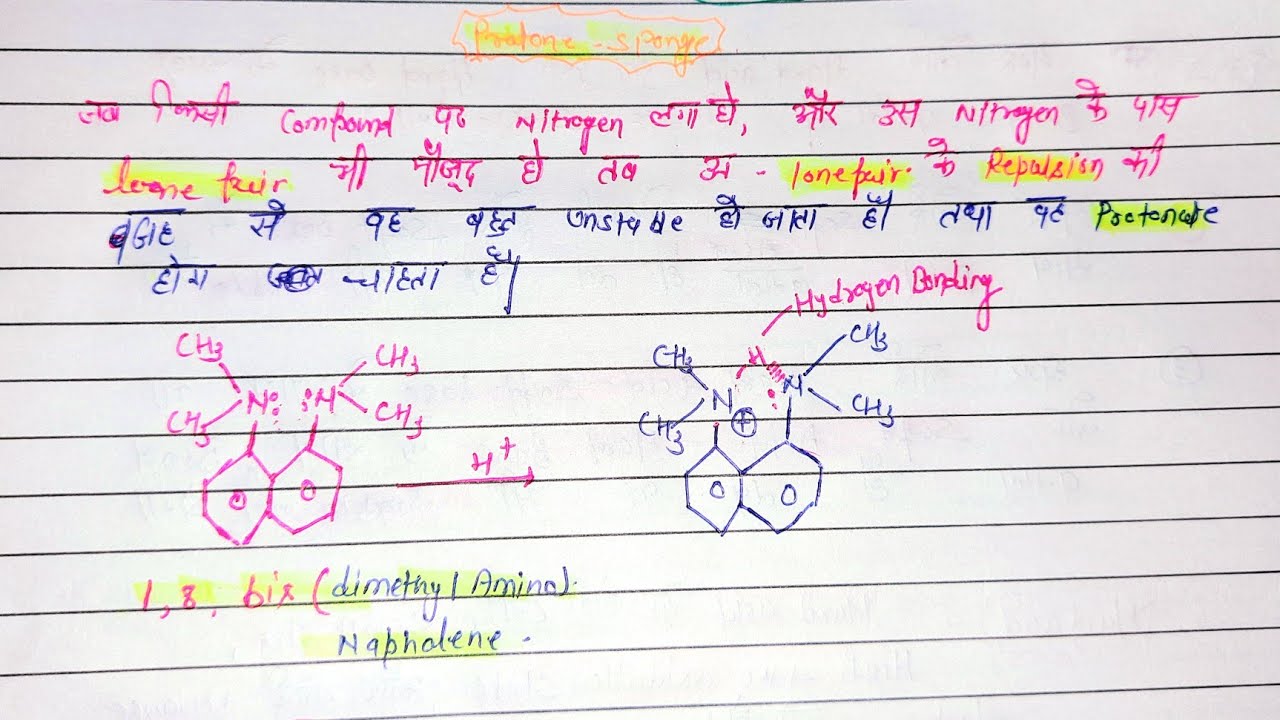 Protone - sponge
जब किसी Compound पर Nitrogen लगा हो, और उस Nitrogen के पास
loone pair भी मौजूद हो तब अ - lonepair के Repulsion की
वजह से वह बहुत Unstable हो जाता है। तथा वह Protonate
होना चाहता है।
Hydrogen Bonding
CH3 CH3 CH3 H CH3
CH3 N: :N CH3 CH3 N ⊕ : N CH3
H+
1, 8, bis (dimethyl Amino)
Napholene -